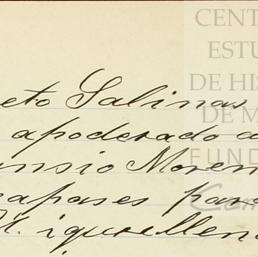 CENT
ESTU
DE HIS
DE M
FUND
eto Salinas
apoderado a
nsio Moren
apases para